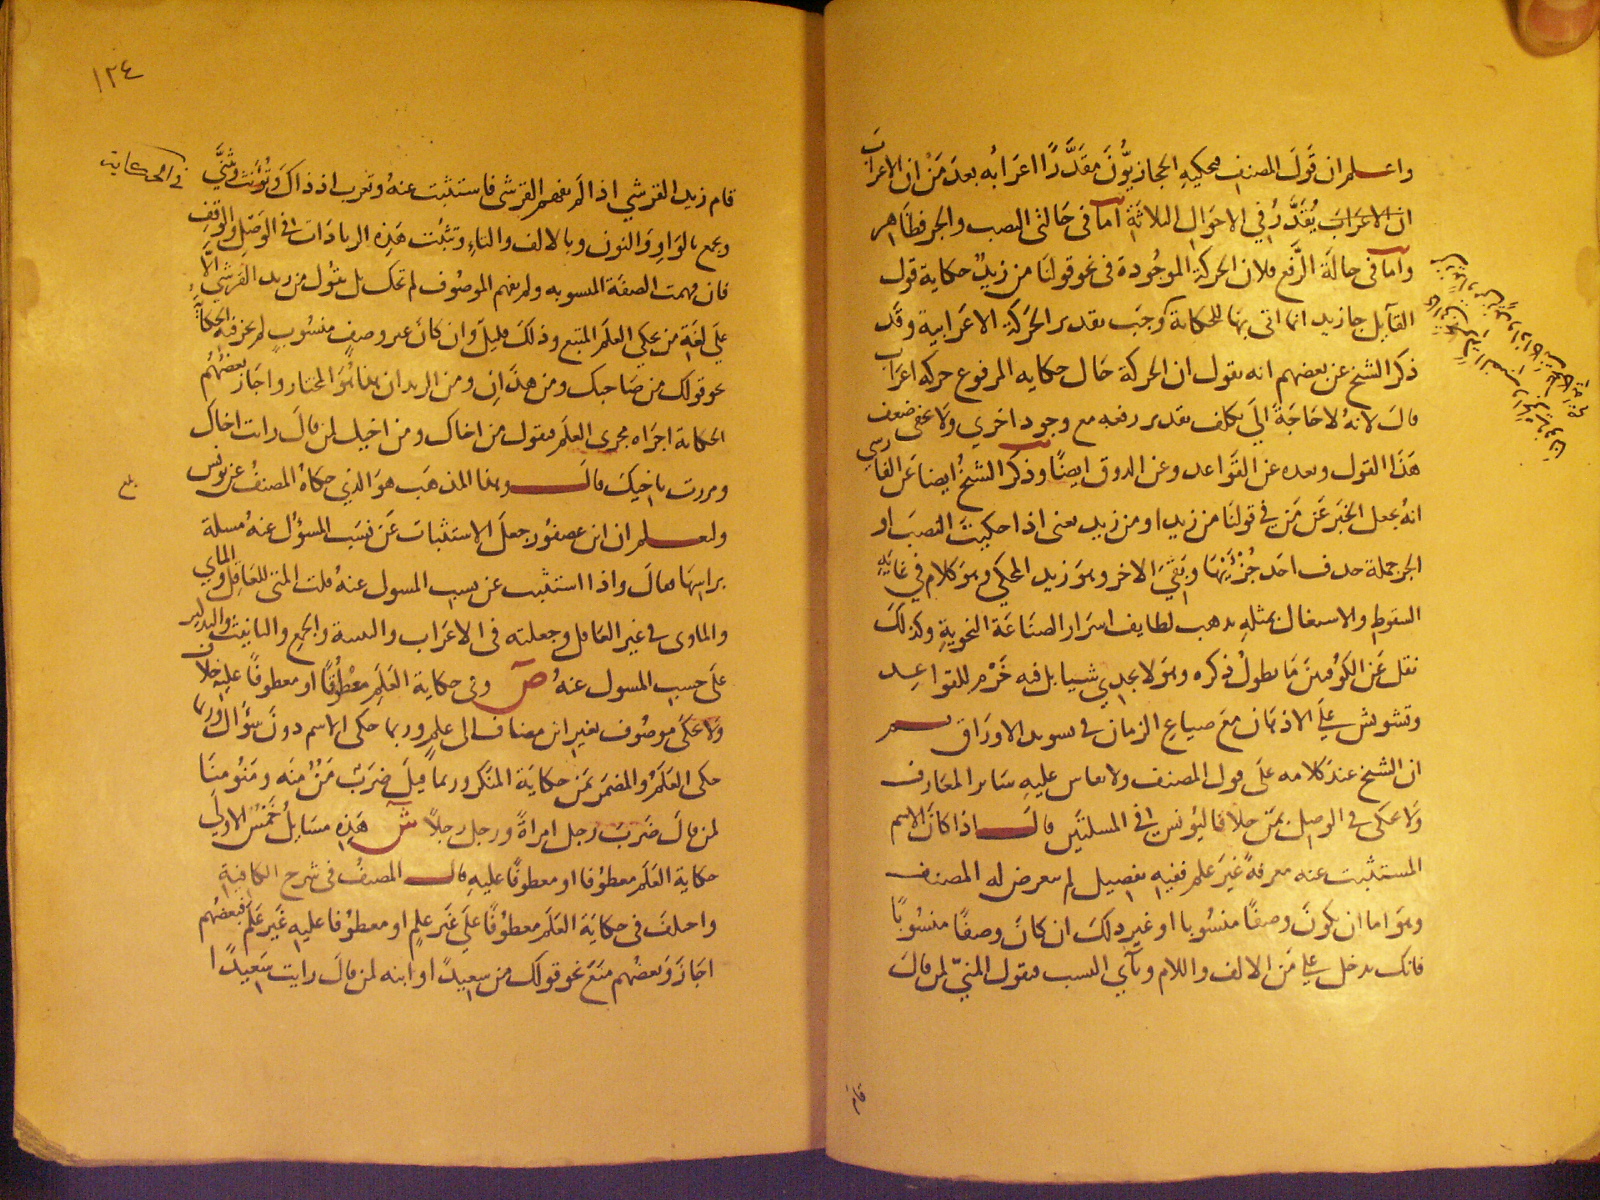 واعلم ان قول المصنف فيحكيه الحجازيون مقدرا اعرابه بعد من ان الاعراب
ان الاعراب يُقدَّر في الاحوال الثلاثة اما في حالتى النصب والجر فظاهر
واما في حالة الرفع فلان الحركة الموجودة في نحو قولنا من زيدٌ حكاية قول
القايل جا زيد انما اتى بها للحكاية وجب تقدير الحركة الاعرابية وقد
ذكر الشيخ عن بعضهم انه يقول ان الحركة حال حكاية المرفوع حركة اعراب
قال لانه لا حاجة الى تكلف تقدير رفعه مع وجود اخرى ولا يخفى ضعف
هذا القول وبعده عن القواعد وعن الذوق ايضًا وذكر الشيخ ايضا عن الفارسي
انه يجعل الخبر عن من في قولنا من زيدا ومن زيد يعنى اذا حكيت النصب او
الجر جملة حذف احد جُزْئَيْها وبقي الاخر وهو زيد المحكي وهو كلام في غاية
السقوط والاشتغال بمثله يذهب لطايف اسرار الصناعة النحوية وكذلك
نقل عن الكوفيين ما يطول ذكره وهو لا يجدي شيا بل فيه خرم للقواعد
وتشويش على الاذهان مع ضياع الزمان في تسويد الاوراق
ان الشيخ عند كلامه على قول المصنف ولا يقاس عليه ساير المعارف
ولا يحكى في الوصل بمن خلافا ليونس في المسلتين قال اذا كان الاسم
المستثبت عنه معرفة غير علم ففيه تفصيل لم يتعرض له المصنف
وهو اما ان يكون وصفًا منسوبا او غير ذلك ان كان وصفًا منسوبًا
فانك تدخل على من الالف واللام وياي النسب فتقول المنيّ لمن قال
قام
١٢٤
في الحكاية
قام زيد القرشي اذا لم يفهم القرشي فاستثبت عنه وتعرب اذ ذاك وتؤنث وتثني
وتجمع بالواو والنون وبالالف والتاء وتثبت هذه الزيادات في الوصل والوقف
فان فهمت الصفة المنسوبه ولم تفهم الموصوف لم تحك بل تقول من زيد القرشي الا
على لغة من يحكي العلم المتبع وذلك قليل وان كان غير وصف منسوب لم تجز فيه الحكاية
نحو قولك من صاحبك ومن هذان ومن الزيدان هذا هو المختار واجاز بعضهم
الحكاية اجراه مجرى العلم فيقول من اخاك ومن اخيك لمن قال رايت اخاك
ومررت باخيك قال وهذا المذهب هو الذي حكاه المصنف عن يونس
بلغ
واعلم ان ابن عصفور جعل الاستثبات عن نسب المسؤل عنه مسلة
براسها فقال واذا استثبت عن نسب المسول عنه قلت المنى للعاقل والماي
والماوى في غير العاقل وجعلته في الاعراب والتثنية والجمع والتانيث والتذكير
على حسب المسول عنه ص وفي حكاية العلم معطوفًا او معطوفًا عليه خلاف
ولا يحكى موصوف بغير ابن مضاف الى علم وربما حكى الاسم دون سؤال وربما
حكى العلم والمضمر بمن حكاية المنكر وربما قيل ضرب مَنٌ منه ومنو منا
لمن قال ضرب رجل امراة ورجل رجلا ش هذه مسايل خمس الاولى
حكاية العلم معطوفا او معطوفًا عليه قال المصنف في شرح الكافية
واختلف في حكاية العلم معطوفًا على غير علم او معطوفا عليه غير علم فبعضهم
اجاز وبعضهم منع نحو قولك من سعيدا وابنه لمن قال رايت سعيدا